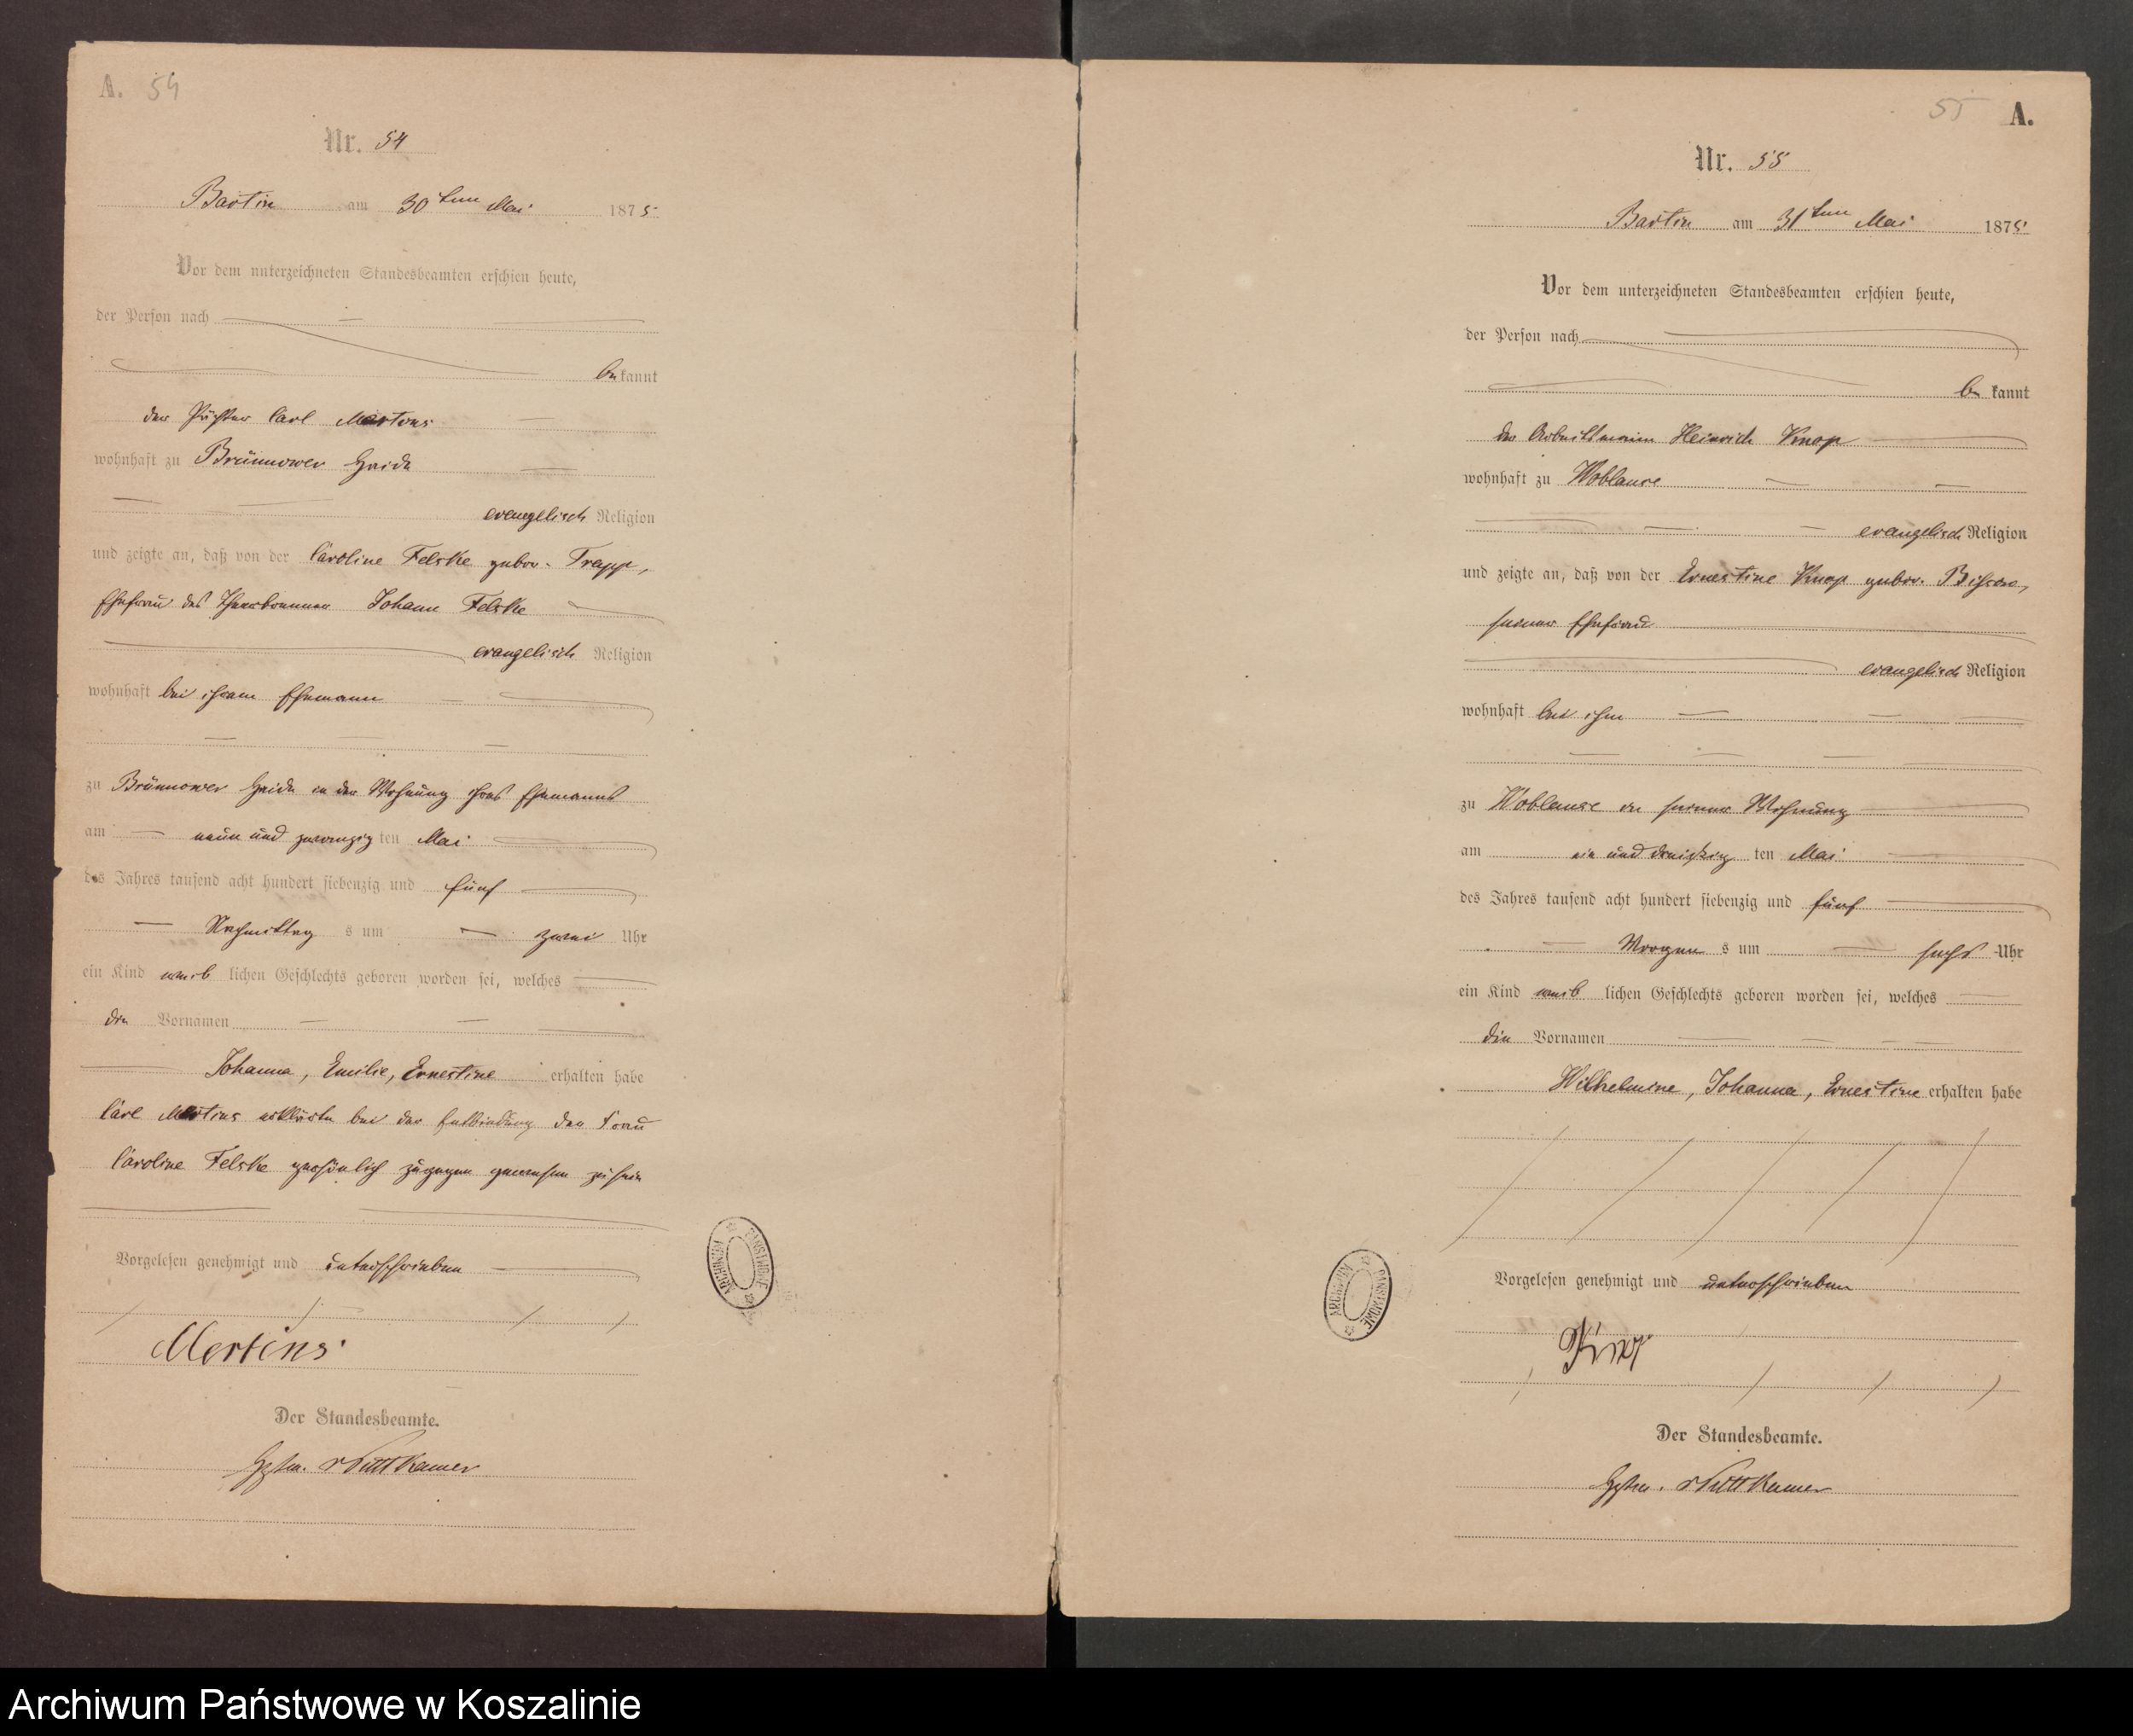 A. 54
Nr. 54
Bartin am 30ten Mai 1875
Vor dem unterzeichneten Standesbeamten erschien heute,
der Person nach
bekannt
der Pächter Carl Mertens
wohnhaft zu Brünnower Heide
evangelisch Religion
und zeigte an, daß von der Caroline Felske gebor. Trapp,
Ehefrau des Johann Felske
evangelisch Religion
wohnhaft bei ihrem Ehemann
zu Brünnower Heide in der Wohnung ihres Ehemanns
am neun und zwanzig ten Mai
des Jahres tausend acht hundert siebenzig und fünf
Nachmittag s um zwei Uhr
ein Kind weib lichen Geschlechts geboren worden sei, welches
die Vornamen
Johanna, Emilie, Ernestine erhalten habe
Carl Mertins erklärte bei der Entbindung der Frau
Caroline Felske persönlich zugegen gewesen zu sein
Vorgelesen genehmigt und unterschrieben
Mertens
Der Standesbeamte.
v Puttkamer
55 A.
Nr. 55
Bartin am 31ten Mai 1875
Vor dem unterzeichneten Standesbeamten erschien heute,
der Person nach
be kannt
der Arbeitsmann Heinrich Knop
wohnhaft zu Woblanse
evangelisch Religion
und zeigte an, daß von der Ernestine Knop gebor.
seiner Ehefrau
evangelisch Religion
wohnhaft bei ihm
zu Woblanse in seiner Wohnung
am ein und dreißig ten Mai
des Jahres tausend acht hundert siebenzig und fünf
Morgen s um sechs Uhr
ein Kind weib lichen Geschlechts geboren worden sei, welches
die Vornamen
Wilhelmine, Johanna, Ernestine erhalten habe
Vorgelesen genehmigt und unterschrieben
Knop
Der Standesbeamte.
v Puttkamer
ARCHIWUM PAŃSTWOWE
ARCHIWUM PAŃSTWOWE
Archiwum Państwowe w Koszalinie